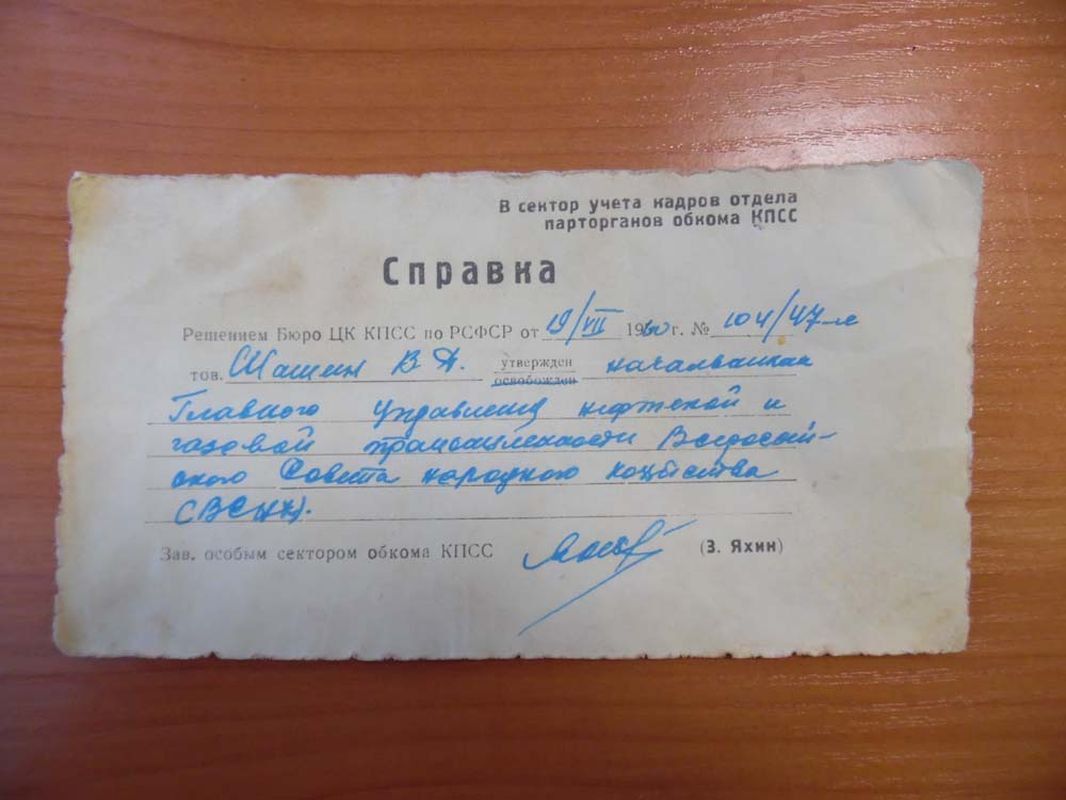 В сектор учета кадров отдела
парторганов обкома КПСС
Справка
Решением Бюро ЦК КПСС по РСФСР от 19/VII 1960 г. № 104/47-г
тов. Шашин В Д. утвержден начальником
освобожден
Главного управления нефтяной и
газовой промышленности Всеросий-
ского Совета народного хозяйства
(ВСНХ).
Зав. особым сектором обкома КПСС (З. Яхин)